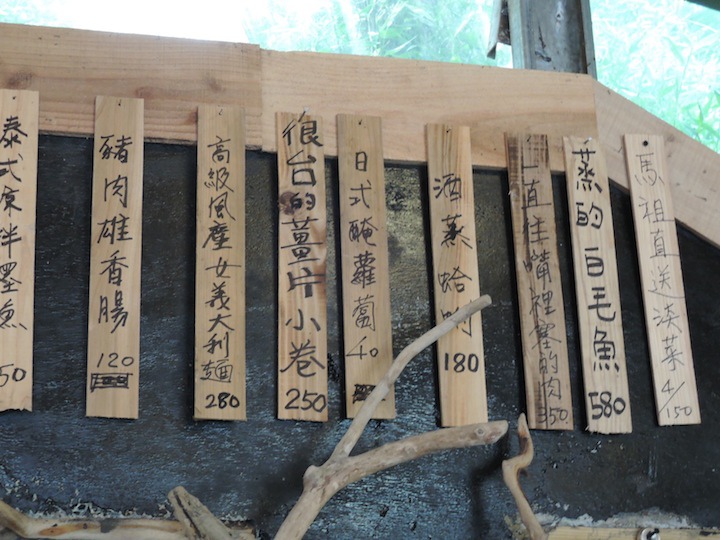 泰式涼拌墨魚 50
豬肉雄香腸 120
高級風塵女義大利麵 280
很台的薑片小卷 250
日式醃蘿蔔 40
酒蒸蛤蜊 180
一直往嘴裡塞的肉 350
蒸的白毛魚 580
馬祖直送淡菜 4/150